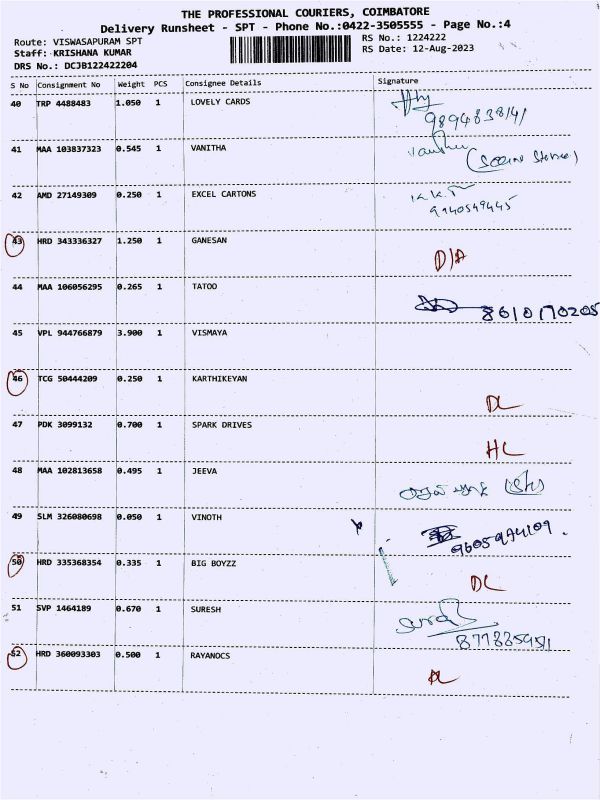 THE PROFESSIONAL COURIERS, COIMBATORE
Delivery Runsheet - SPT - Phone No.:0422-3505555 - Page No.:4
Route: VISWASAPURAM SPT
Staff: KRISHANA KUMAR
DRS No.: DCJB122422204
RS No.: 1224222
RS Date: 12-Aug-2023
S No Consignment No Weight PCS Consignee Details Signature
40 TRP 4488483 1.050 1 LOVELY CARDS
9894838141
41 MAA 103837323 0.545 1 VANITHA
42 AMD 27149309 0.250 1 EXCEL CARTONS K.K.T
9140549445
43 HRD 343336327 1.250 1 GANESAN D/A
44 MAA 106056295 0.265 1 TATOO 8610170205
45 VPL 944766879 3.900 1 VISMAYA
46 TCG 50444209 0.250 1 KARTHIKEYAN DL
47 PDK 3099132 0.700 1 SPARK DRIVES HL
48 MAA 102813658 0.495 1 JEEVA
49 SLM 326080698 0.050 1 VINOTH
50 HRD 335368354 0.335 1 BIG BOYZZ DL
51 SVP 1464189 0.670 1 SURESH
52 HRD 360093303 0.500 1 RAYANOCS DL